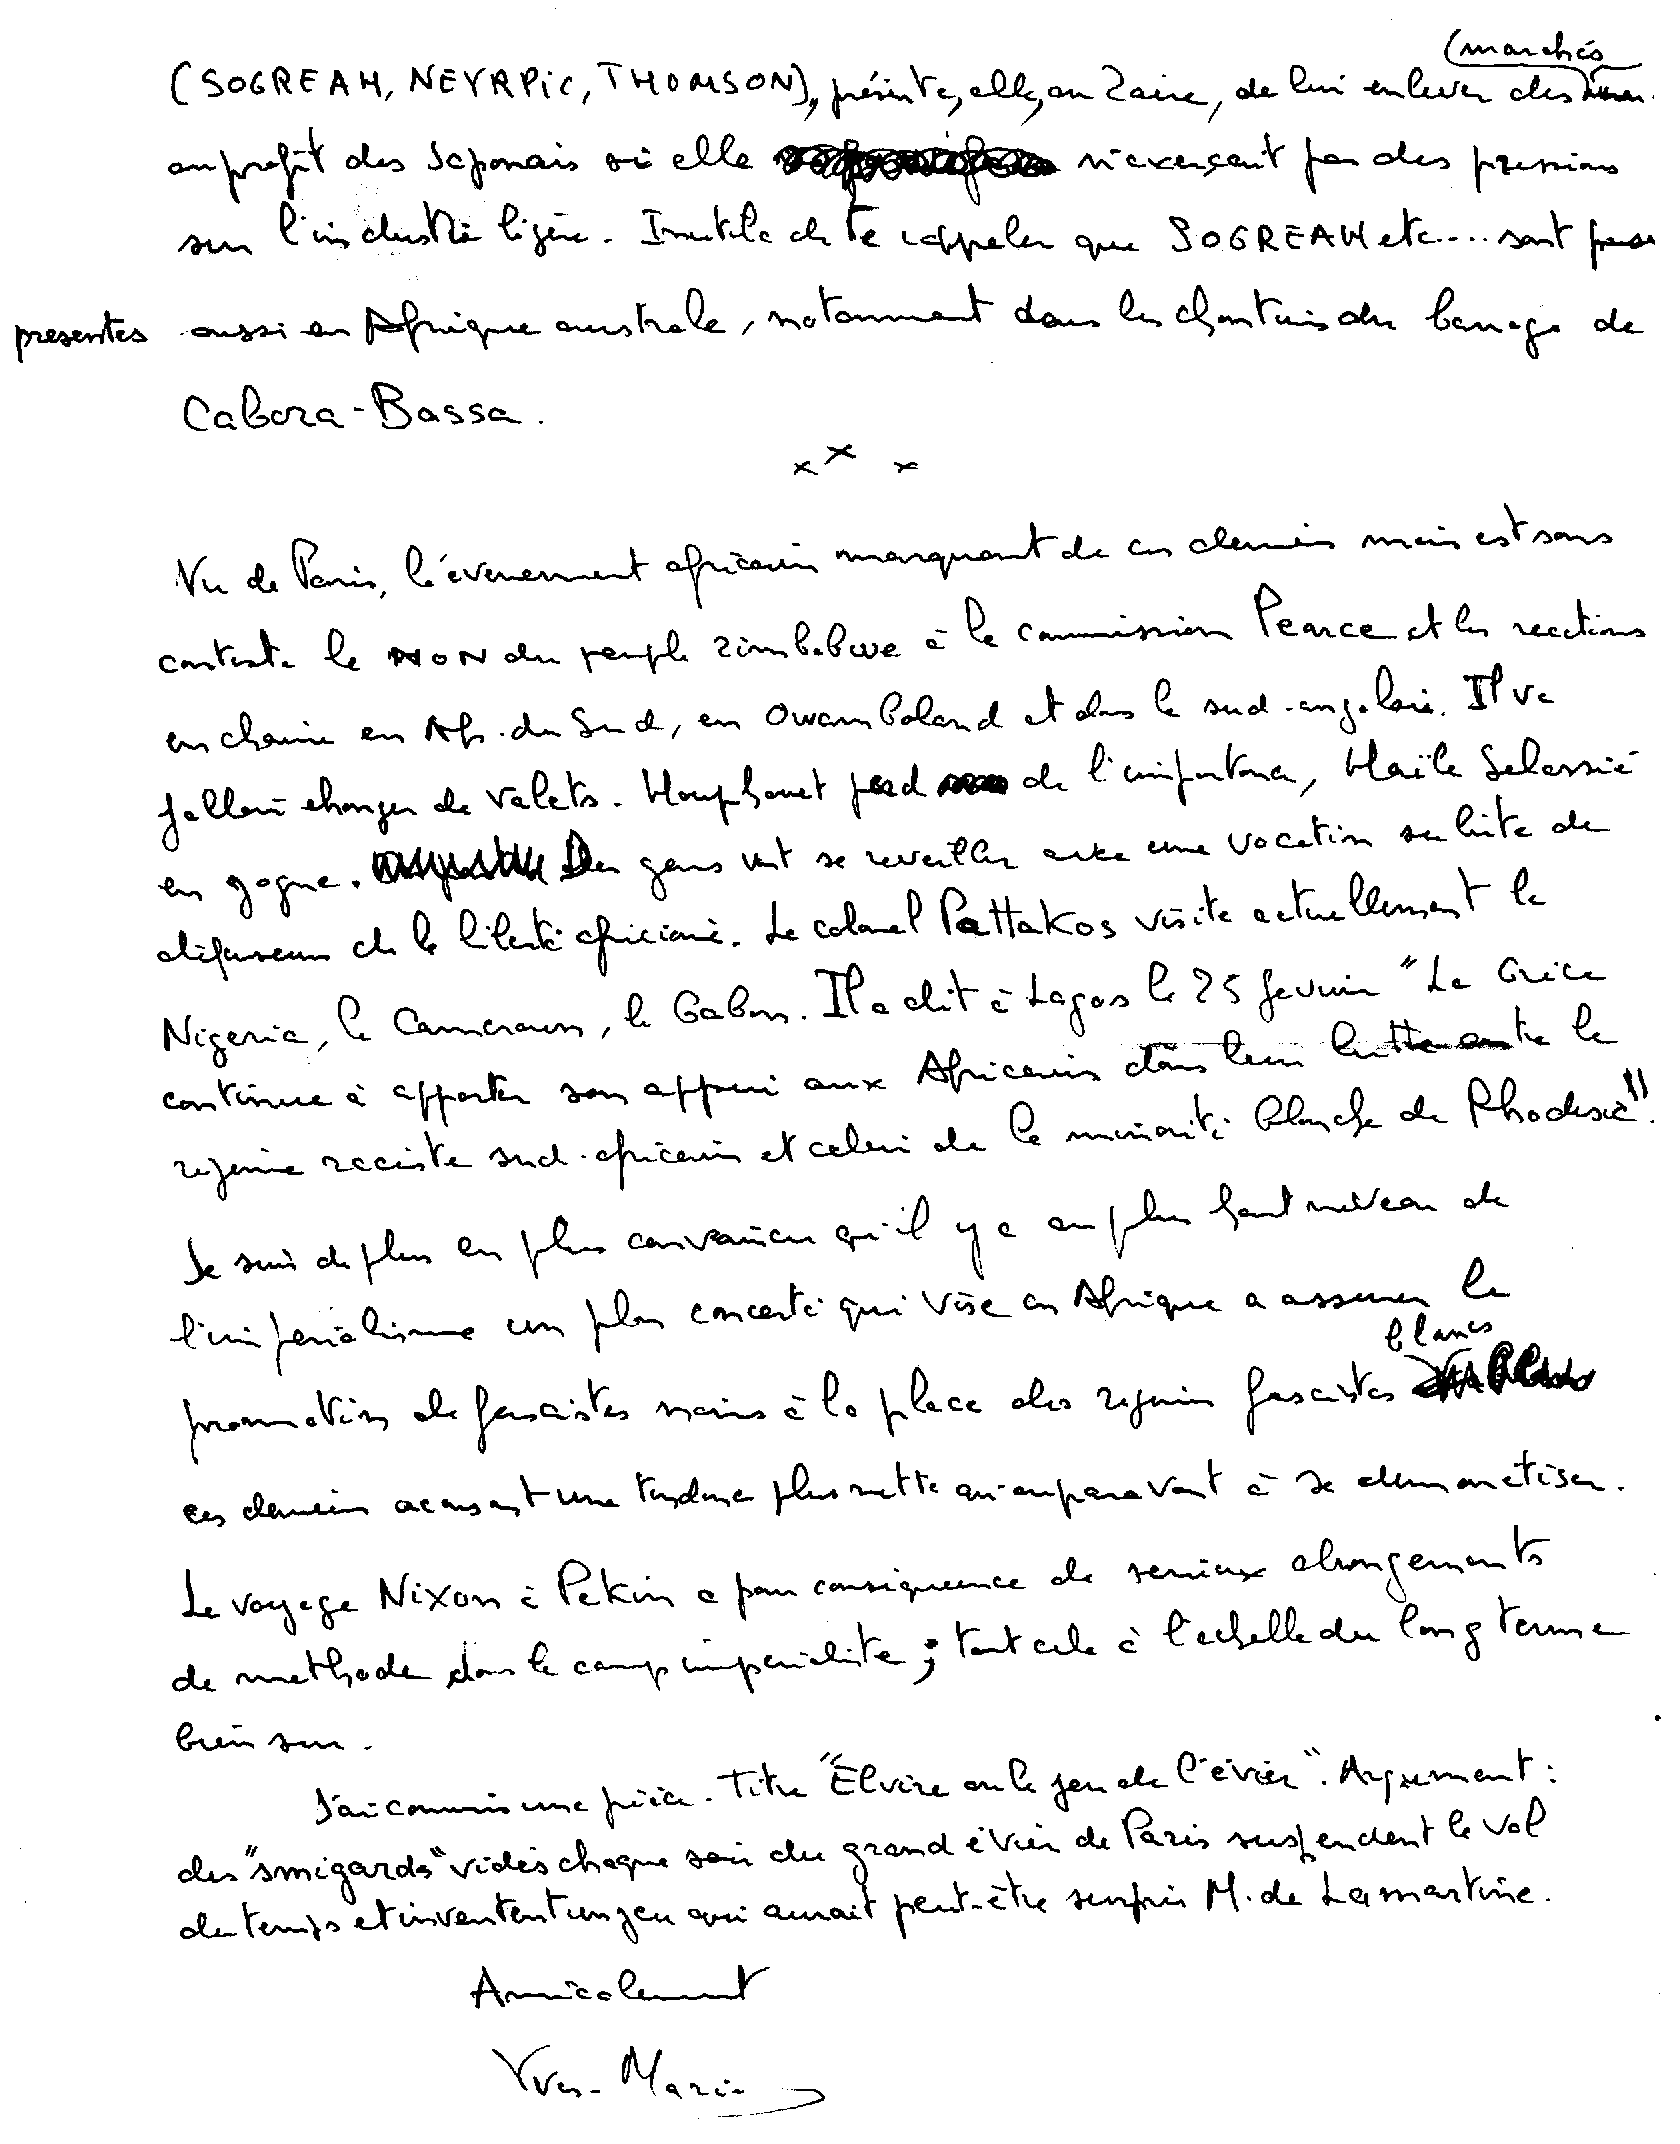 (marchés
(SOGREAH, NEYRPIC, THOMSON), présente, elle, au Zaïre, de lui enlever des
au profit des Japonais si elle n'exerçait pas des pressions
sur l'industrie légère. Inutile de te rappeler que SOGREAH etc.... sont
presentes aussi en Afrique australe, notamment dans les chantiers du barrage de
Cabora-Bassa.
x x x
Vu de Paris, l'évenement africain marquant de ces derniers mois est sans
conteste le NON du peuple zimbabwe à la commission Pearce et les reactions
en chaine en Afr. du Sud, en Owamboland et dans le sud-angolais. Il va
falloir changer de valets. Houphouet perd de l'importance, Haïlé Selassié
en gagne. Des gens vont se reveiller avec une vocation subite de
défenseurs de la liberté africaine. Le colonel Pattakos visite actuellement le
Nigeria, le Cameroun, le Gabon. Il a dit à Lagos le 25 fevrier "La Grèce
continue à apporter son appui aux Africains dans leur lutte contre le
regime raciste sud-africain et celui de la minorité blanche de Rhodesie".
Je suis de plus en plus convaincu qu'il y a au plus haut niveau de
l'imperialisme un plan concerté qui vise en Afrique a assurer la
blancs
promotion de fascistes noirs à la place des regimes fascistes
ces derniers accusant une tendance plus nette qu'auparavant à se demonetiser.
Le voyage Nixon à Pekin a pour consequence de serieux changements
de methode dans le camp imperialiste ; tout cela à l'echelle du long terme
bien sur.
J'ai commis une pièce. Titre "Elvire ou le jeu de l'évier". Argument :
des "smigards" vidés chaque soir du grand évier de Paris suspendent le vol
du temps et inventent un jeu qui aurait peut-être surpris M. de Lamartine.
Amicalement
Yves-Marie